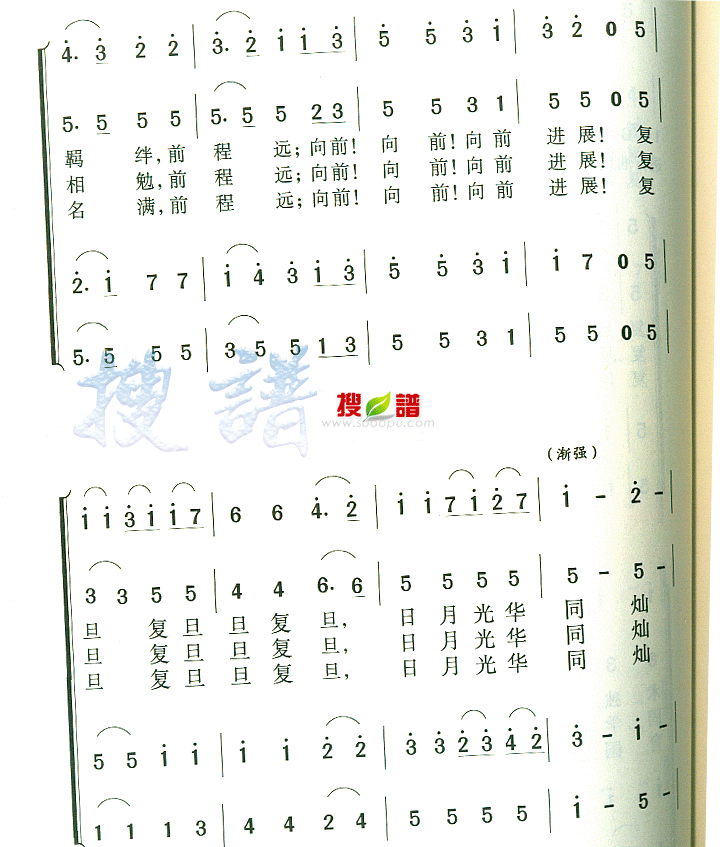 4. 3 2 2 | 3. 2 1 1 3 | 5 5 3 1 | 3 2 0 5
5. 5 5 5 | 5. 5 5 2 3 | 5 5 3 1 | 5 5 0 5
羁 绊,前 程 远;向前! 向 前!向前 进展! 复
相 勉,前 程 远;向前! 向 前!向前 进展! 复
名 满,前 程 远;向前! 向 前!向前 进展! 复
2. 1 7 7 | 1 4 3 1 3 | 5 5 3 1 | 1 7 0 5
5. 5 5 5 | 3 5 5 1 3 | 5 5 3 1 | 5 5 0 5
搜谱
搜谱
www.sooopu.com
(渐强)
1 1 3 1 1 7 | 6 6 4. 2 | 1 1 7 1 2 7 | 1 – 2 –
3 3 5 5 | 4 4 6. 6 | 5 5 5 5 | 5 – 5 –
旦 复旦 旦 复 旦, 日 月 光 华 同 灿
旦 复旦 旦 复 旦, 日 月 光 华 同 灿
旦 复旦 旦 复 旦, 日 月 光 华 同 灿
5 5 1 1 | 1 1 2 2 | 3 3 2 3 4 2 | 3 – 1 –
1 1 1 3 | 4 4 2 4 | 5 5 5 5 | 1 – 5 –